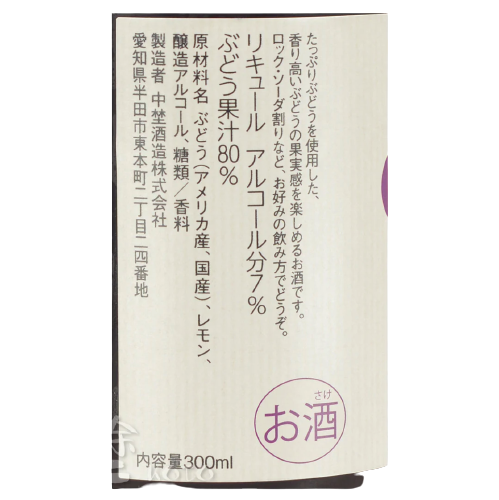 たっぷりぶどうを使用した、
香り高いぶどうの果実感を楽しめるお酒です。
ロック・ソーダ割りなど、お好みの飲み方でどうぞ。
リキュール アルコール分7%
ぶどう果汁80%
原材料名 ぶどう(アメリカ産、国産)、レモン、
醸造アルコール、糖類/香料
製造者 中埜酒造株式会社
愛知県半田市東本町二丁目二四番地
さけ
お酒
内容量300ml